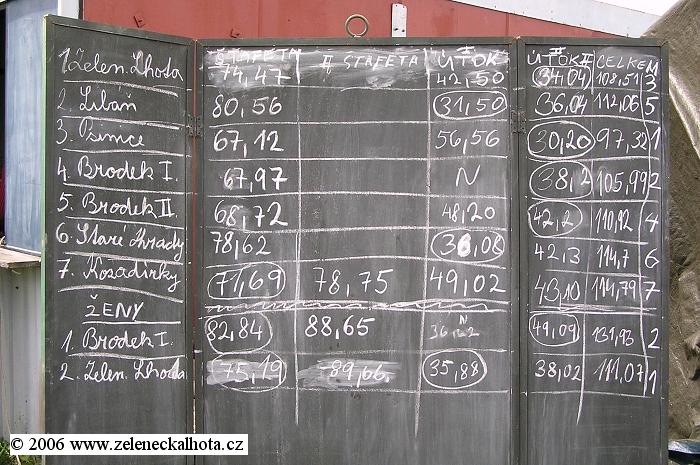 ŠTAFETA II ŠTAFETA I ÚTOK ÚTOK II CELKEM
1. Želen. Lhota 74,47 42,50 34,04 108,51 3
2. Libáň 80,56 31,50 36,04 112,06 5
3. Pšinice 67,12 56,56 30,20 97,32 1
4. Brodek I. 67,97 N 38,2 105,99 2
5. Brodek II. 68,72 48,20 42,2 110,92 4
6. Staré Hrady 78,62 36,08 42,3 114,7 6
7. 71,69 78,75 49,02 43,10 114,79 7
ŽENY
1. Brodek I. 82,84 88,65 N 49,09 131,93 2
2. Želen. Lhota 75,19 89,66 35,88 38,02 111,07 1
© 2006 www.zeleneckalhota.cz